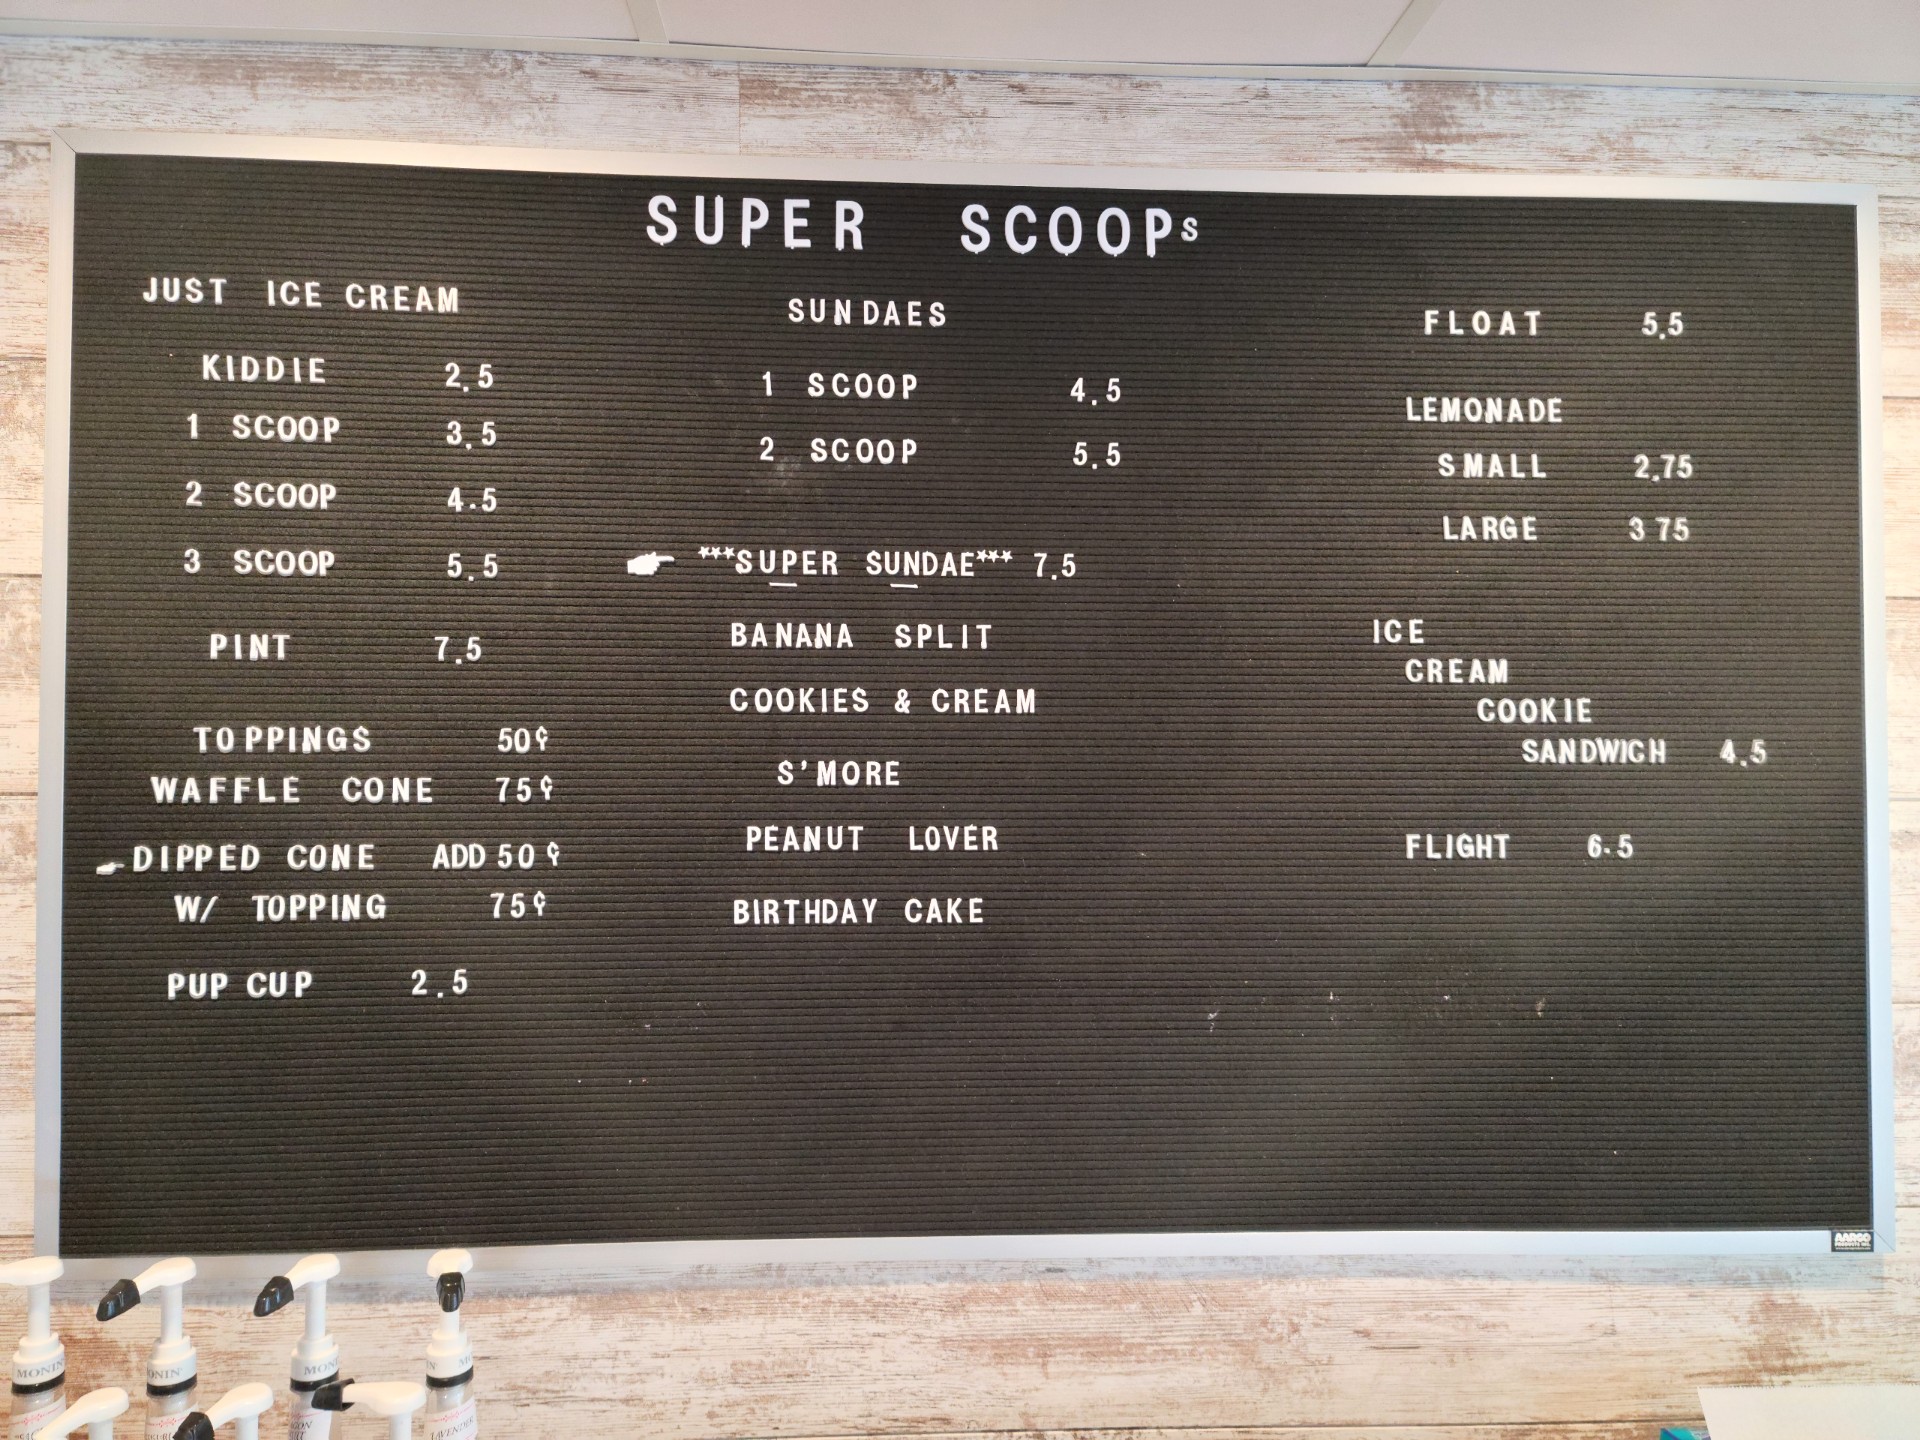 SUPER SCOOPs
JUST ICE CREAM
KIDDIE 2.5
1 SCOOP 3.5
2 SCOOP 4.5
3 SCOOP 5.5
PINT 7.5
TOPPINGS 50¢
WAFFLE CONE 75¢
DIPPED CONE ADD 50¢
W/ TOPPING 75¢
PUP CUP 2.5
SUNDAES
1 SCOOP 4.5
2 SCOOP 5.5
***SUPER SUNDAE*** 7.5
BANANA SPLIT
COOKIES & CREAM
S'MORE
PEANUT LOVER
BIRTHDAY CAKE
FLOAT 5.5
LEMONADE
SMALL 2.75
LARGE 3 75
ICE
CREAM
COOKIE
SANDWICH 4.5
FLIGHT 6.5
AARCO
MONIN
MONIN
LAVENDER